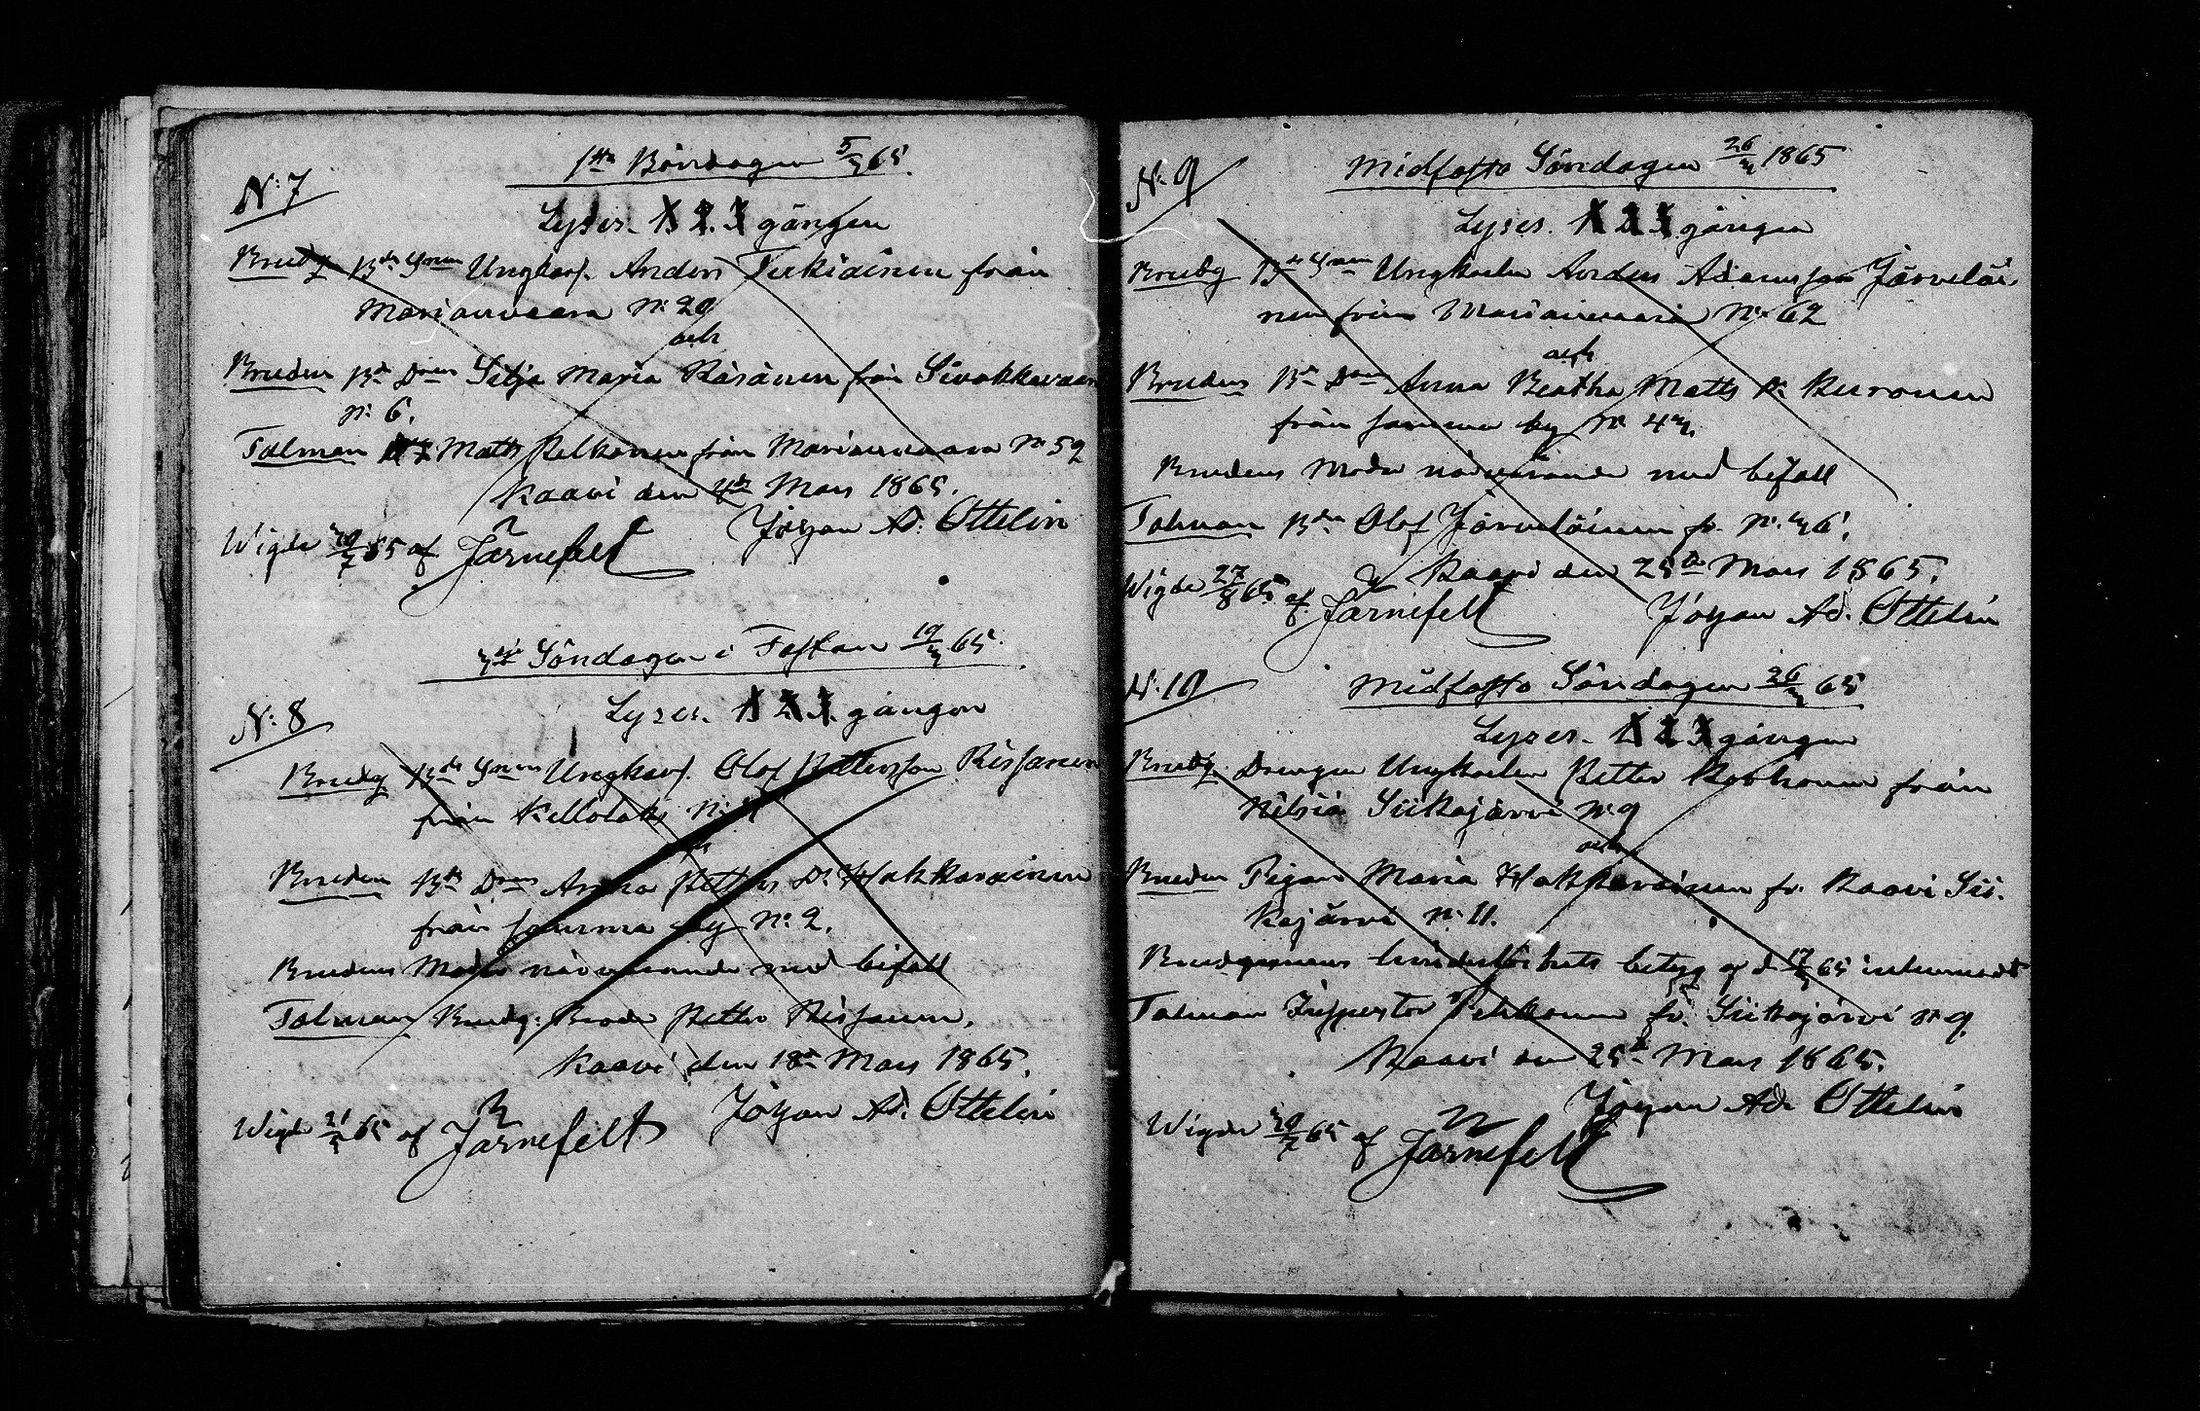 1sta Böndagen 5/3 65.
N:7
Lyses. 1 2. 3 gången
Brudg Bde Sonen Ungkarl. Anders Tukiainen från
Marianvaara N: 29
och
Bruden Bde Dren Silja Maria Räsänen från Sivakkavaara
N: 6.
Talman Matts Pelkonen från Marianvaara N: 52
Kaavi den 4de Mars 1865.
Johan Ad: Ottelin
Wigde af Järnefelt
3dje Söndagen i Fastan 19/3 65
N: 8
Lyses. 1 2 3. gången
Brudg Bde Sonen Ungkarl. Olof Pettersson Rissanen
från Kellolaks N:
och
Bruden Bde Dren Anna Petters D: Hakkarainen
från samma by N: 2.
Brudens Moder närvarande med bifall
Talman Brudg: Broder Petter Rissanen.
Kaavi den 18de Mars 1865.
Johan Ad. Ottelin
Wigde 65 af Järnefelt
N: 9
Midfasto Söndagen 26/3 1865
Lyses. 1 2 3 gången
Brudg Bde Sonen Ungkarlen Anders Adamsson Järveläi
nen från Marianvaara N: 62
och
Bruden Bde Dren Anna Beatha Matts D: Kuronen
från samma by N: 43.
Brudens Moder närvarande med bifall
Talman Bden Olof Järveläinen fr. N: 36.
Kaavi den 25de Mars 1865.
Wigde 27/8 65 af Järnefelt
Johan Ad. Ottelin
N: 10
Midfasto Söndagen 26/3 65
Lyses. 1 2 3 gången
Brudg. Drengen Ungkarlen Petter Korhonen från
Nilsiä Siikajärvi N: 9
och
Bruden Pigan Maria Hakkarainen fr. Kaavi Sii-
kajärvi N: 11.
Brudgummens hinderlöshets betyg af d. 17/3 65 inlemnadt
Talman Inspector Pelkonen fr. Siikajärvi N: 9
Kaavi den 25de Mars 1865.
Johan Ad. Ottelin
Wigde 65 af Järnefelt